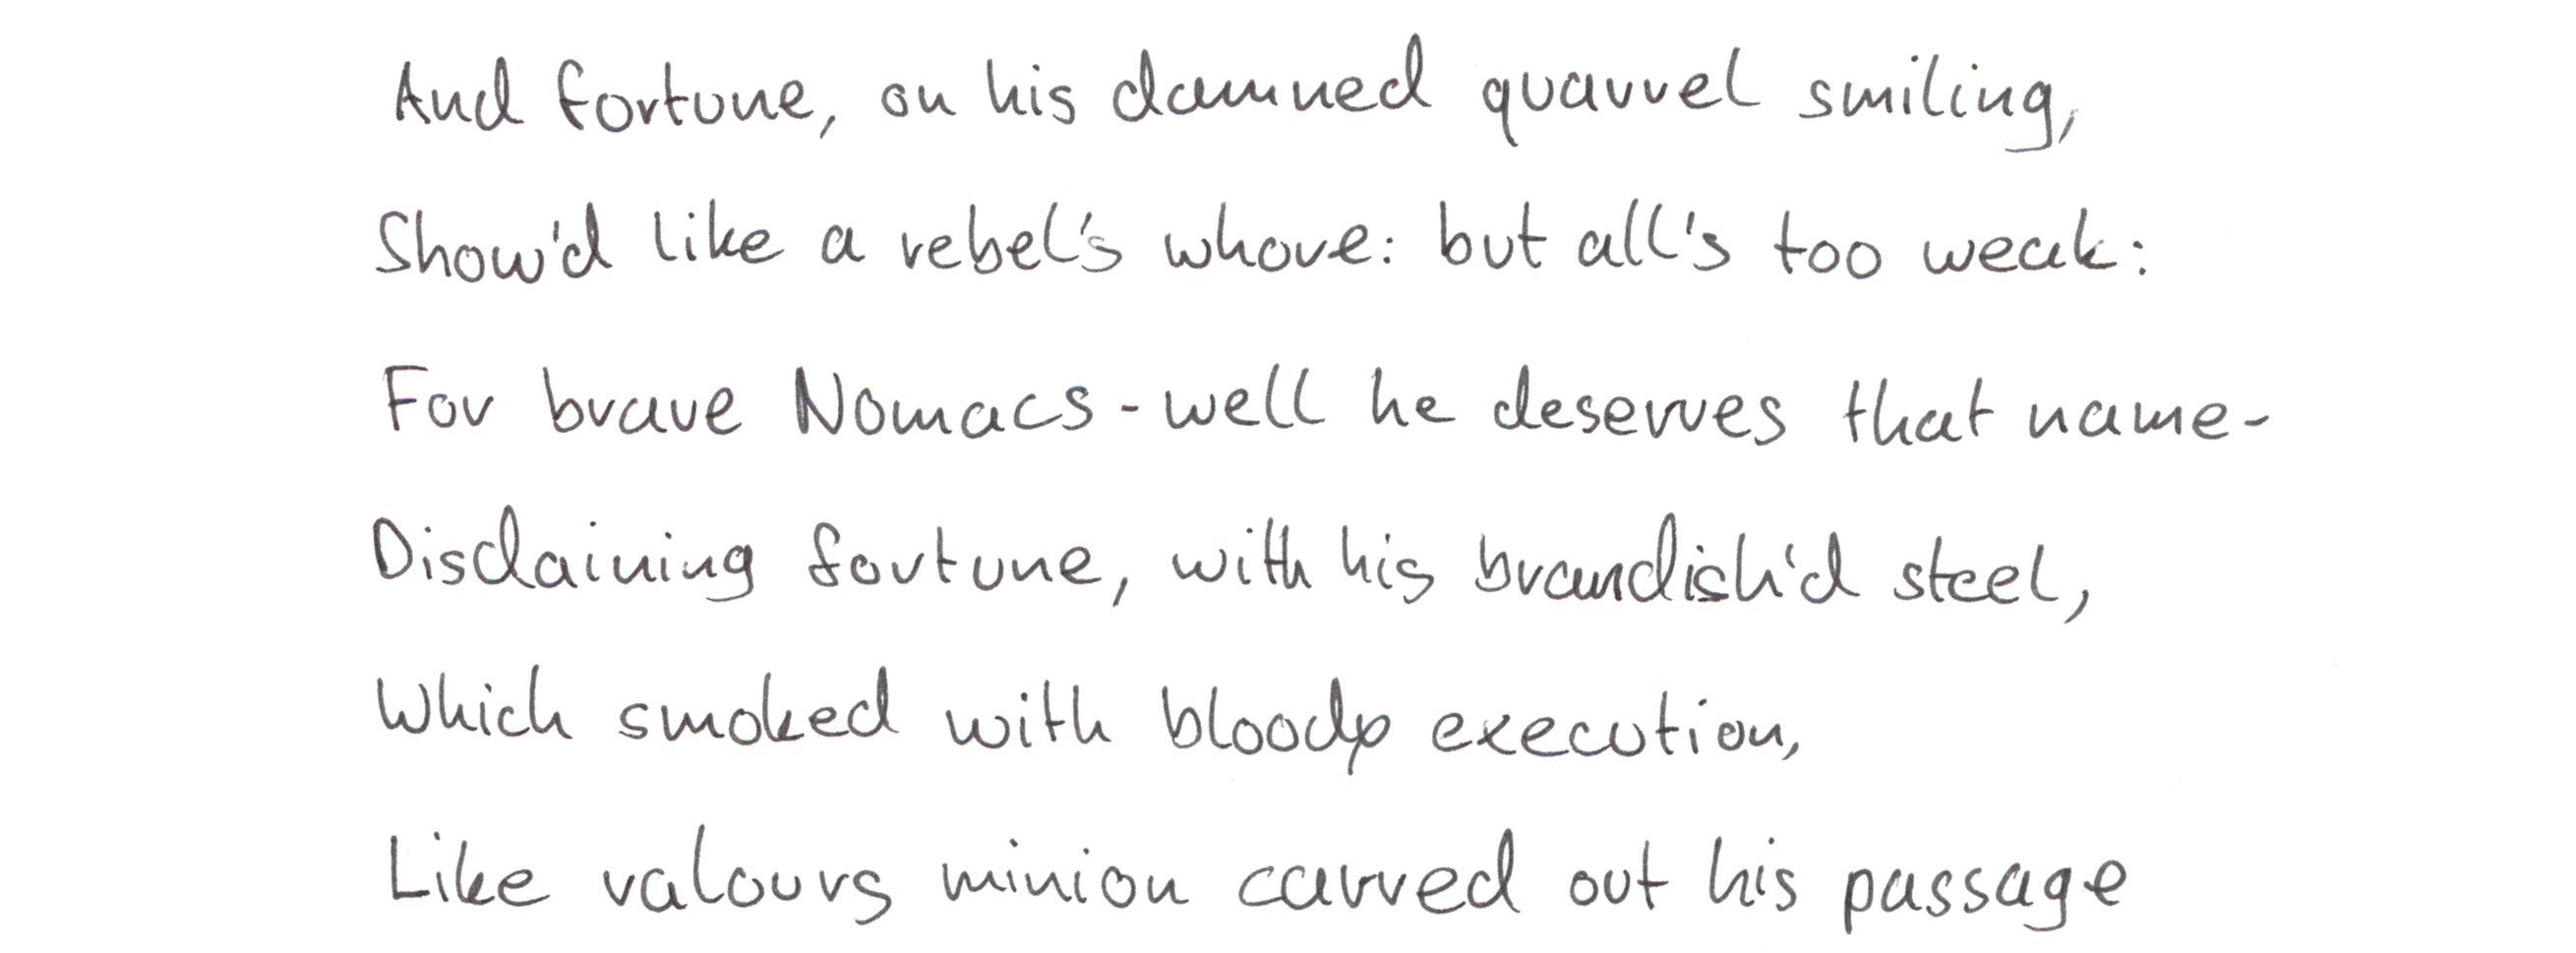 And fortune, on his damned quarrel smiling,
Show'd like a rebel's whore: but all's too weak:
For brave Nomacs - well he deserves that name -
Disdaining fortune, with his brandish'd steel,
Which smoked with bloody execution,
Like valours minion carved out his passage